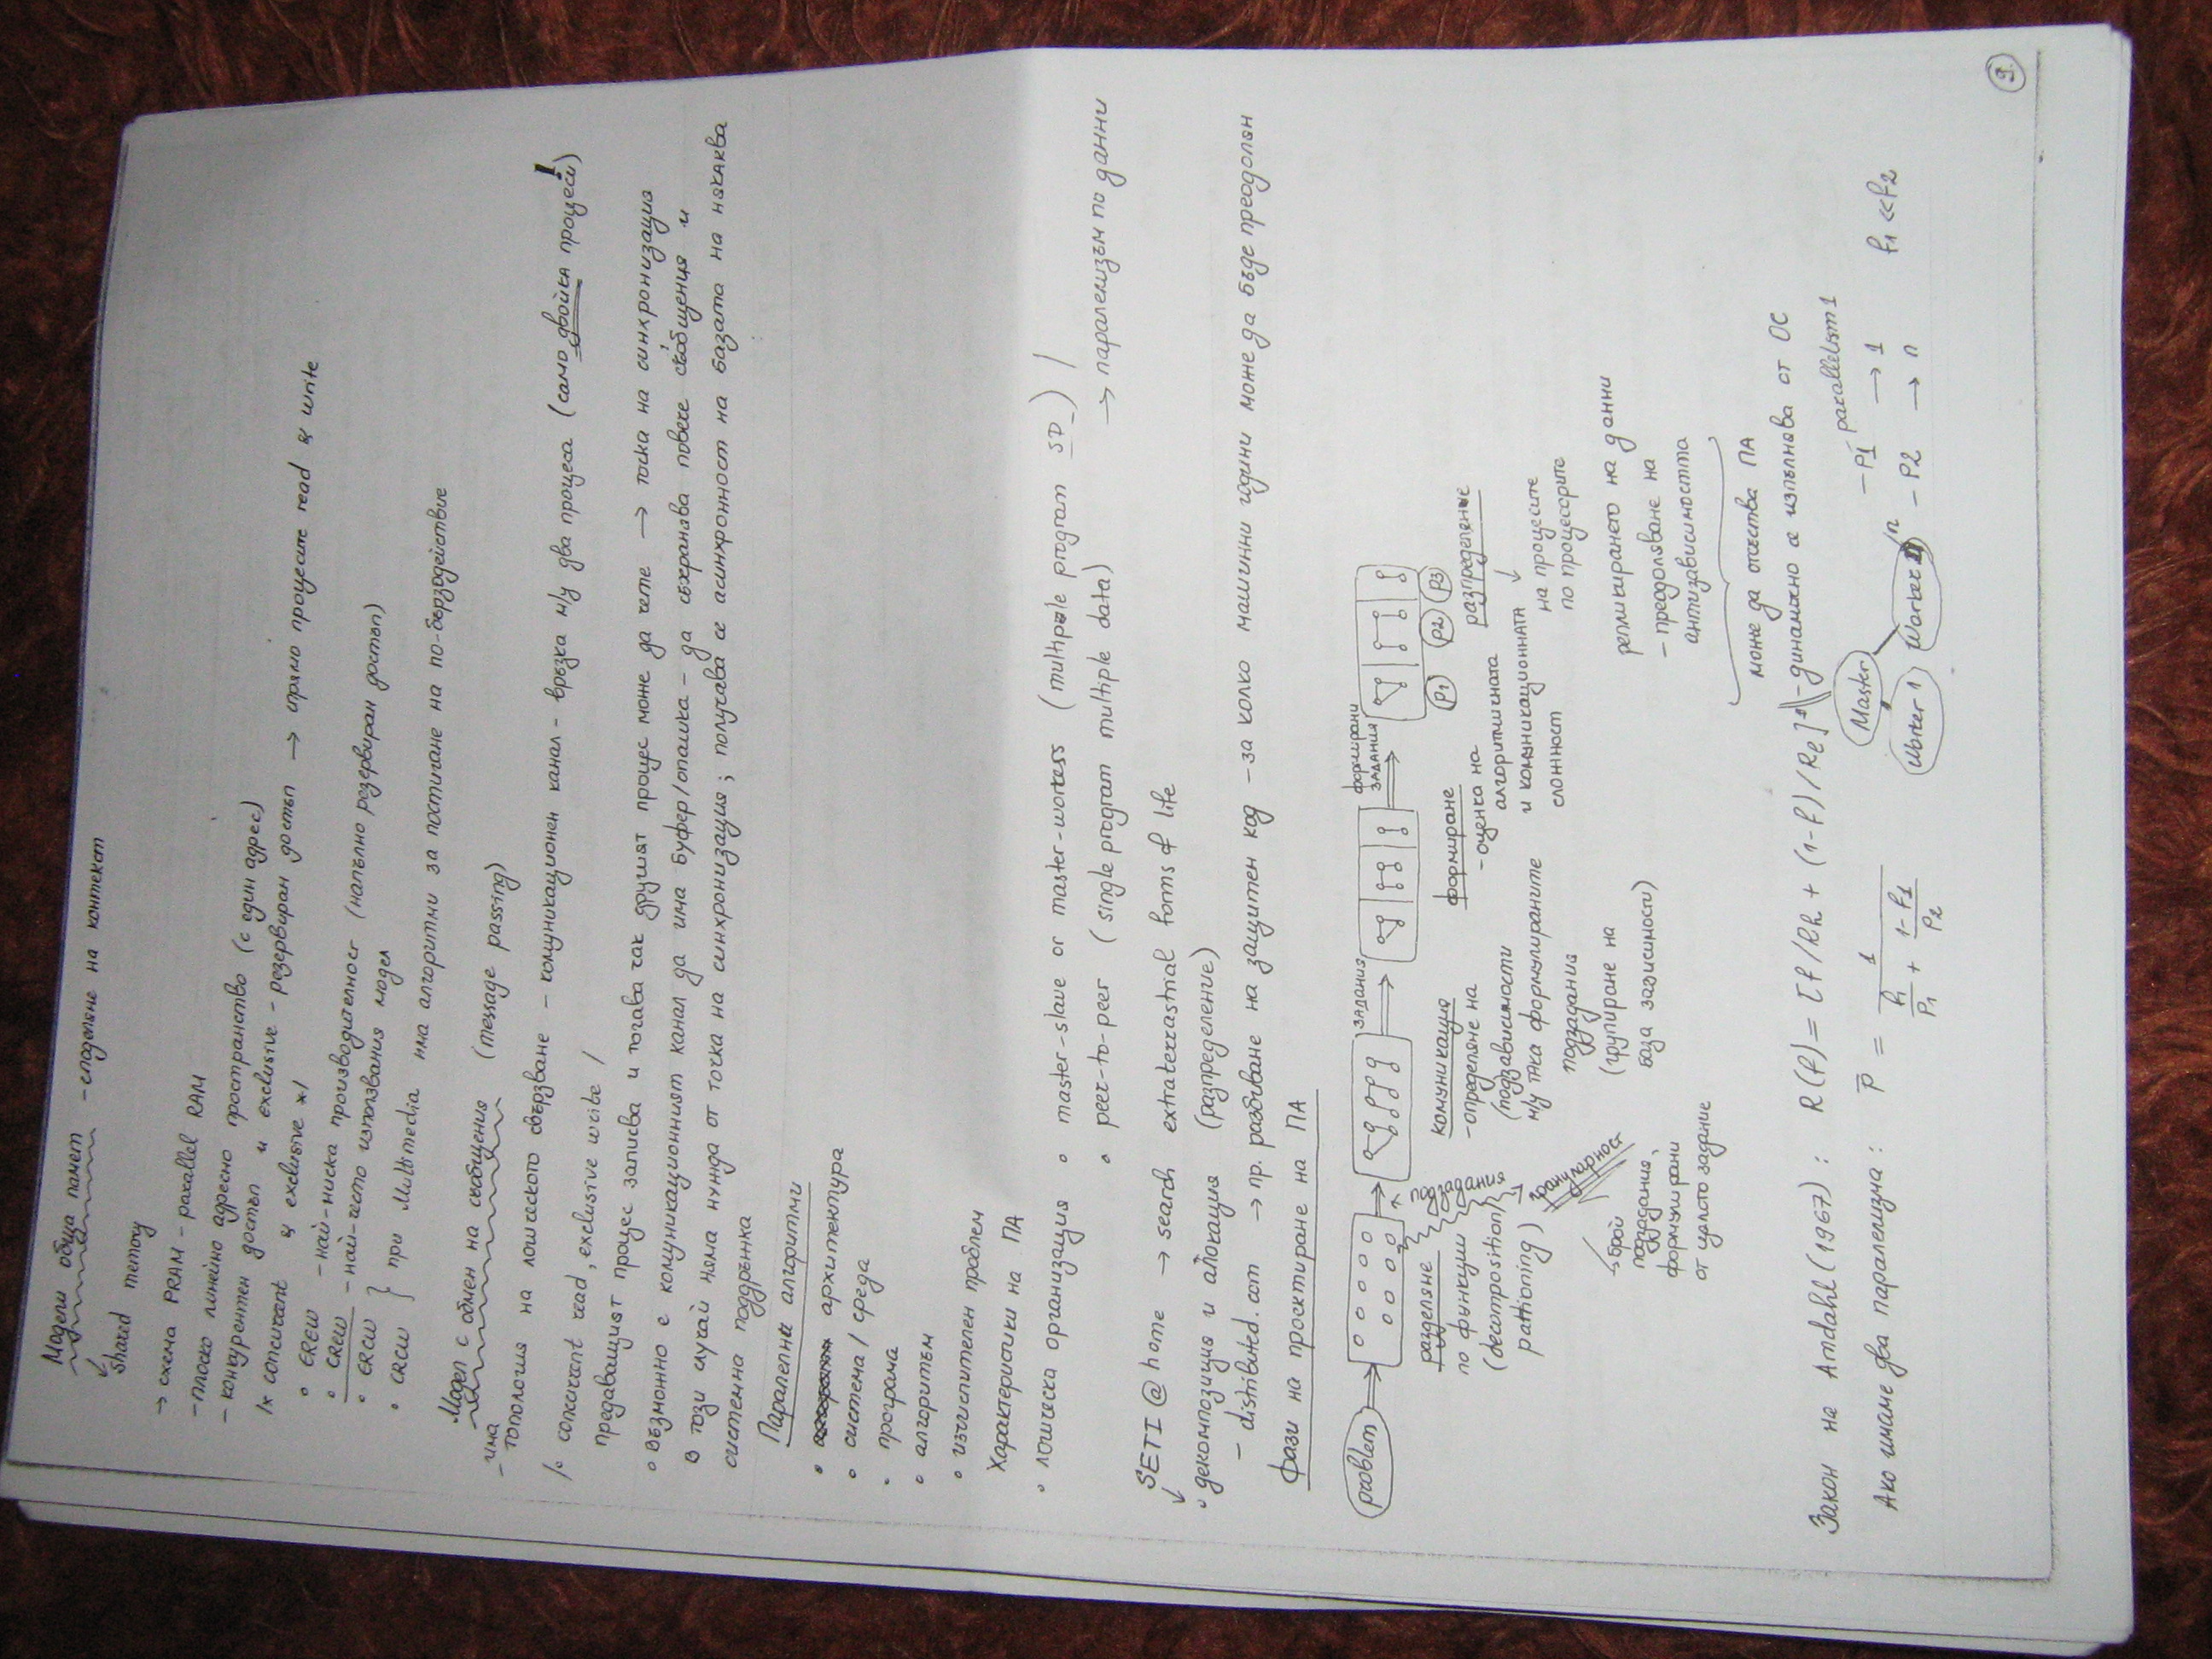 Модели обща памет - споделяне на контекст
↓
shared memory
→ схема PRAM - parallel RAM
- плоско линейно адресно пространство (с един адрес)
- конкурентен достъп и exclusive - резервиран достъп → спрямо процесите read & write
/* concurrent & exclusive */
• EREW - най-ниска производителност (напълно резервиран достъп)
• CREW - най-често използвания модел
• ERCW } при Multimedia има алгоритми за постигане на по-бързодействие
• CRCW
Модел с обмен на съобщения (message passing)
- има
топология на логическото свързване - комуникационен канал - връзка м/у два процеса (само двойка процеси)!
/• concurrent read, exclusive write /
предаващият процес записва и тогава чак другият процес може да чете → точка на синхронизация
• възможно е комуникационният канал да има буфер/опашка - да съхранява повече съобщения и
в този случай няма нужда от точка на синхронизация; получава се асинхронност на базата на някаква
системна поддръжка
Паралелни алгоритми
• архитектура
• система / среда
• програма
• алгоритъм
• изчислителен проблем
Характеристики на ПА
• логическа организация • master-slave or master-workers (multiple program SD) /
• peer-to-peer (single program multiple data) → паралелизъм по данни
SETI @ home → search extraterrastrial forms of life
• декомпозиция и алокация (разпределение)
- distributed.com → пр. разбиване на защитен код - за колко машинни години може да бъде преодолян
Фази на проектиране на ПА
problem ⇒ ⇒ задания ⇒ формирани задания ⇒
P1 P2 P3
разделяне
по функции
(decomposition/
pattioning)
→ брой
подзадания,
формулирани
от цялото задание
комуникация
- определяне на
(подзависимости
м/у тяка формулираните
подзадания
(групиране на
база зависимости)
формиране
- оценка на
алгоритмичната
и комуникационната
сложност
разпределяне
↓
на процесите
по процесорите
репликирането на данни
- преодоляване на
антизависимостта
може да отсъства ПА
- динамично се изпълнява от ОС
Закон на Amdahl (1967) : R(f) = [f/Rh + (1-f)/Re]⁻¹
Master
Worker 1 Worker n
- P1 parallelism 1
- P1 → 1
- P2 → n f1 << f2
Ако имаме два паралелизма : P̄ = 1 / (f1/P1 + (1-f1)/P2)
9.